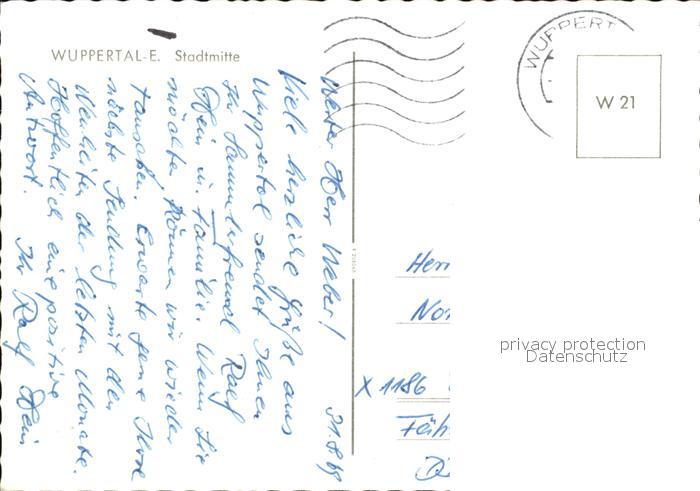 WUPPERTAL-E. Stadtmitte
31.8.69
Werter Herr Weber!
Viele herzliche Grüße aus
Wuppertal sendet Ihnen
Ihr Sammlerfreund Ralf
Hein u. Familie. Wenn Sie
möchten können wir wieder
tauschen. Erwarte gerne Ihre
nächste Sendung mit den
Neuheiten der letzten Monate.
Hoffentlich eine positive
Antwort. Ihr Ralf Hein
WUPPERT
W 21
Herr
X 1186
privacy protection
Datenschutz